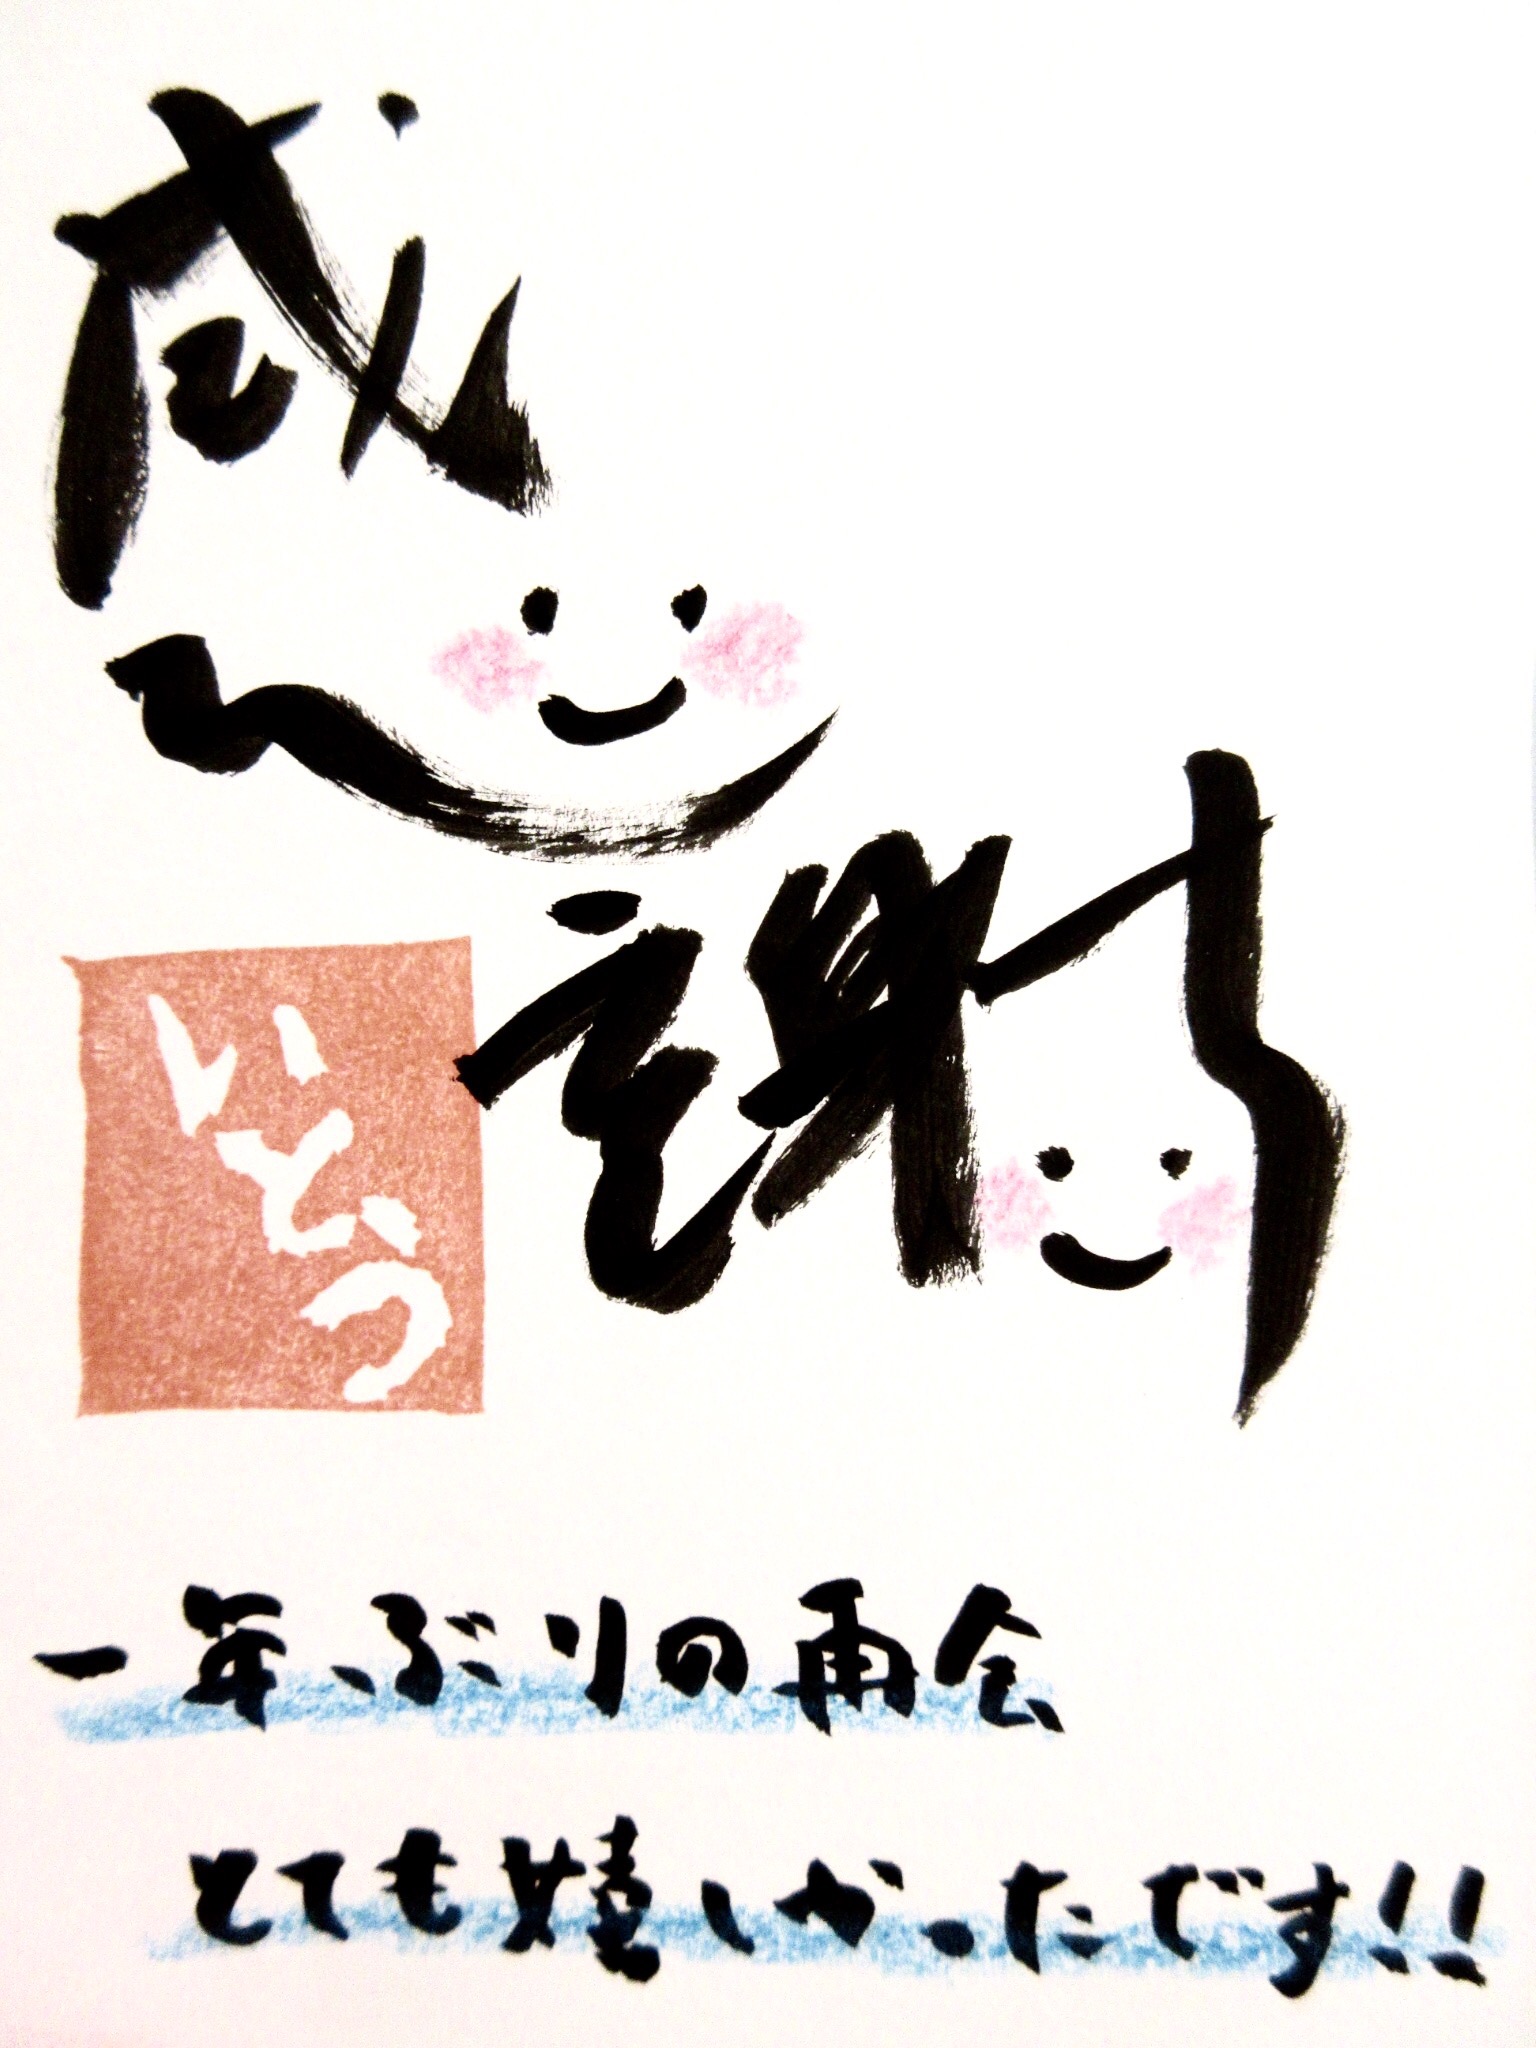 感謝
いとう
一年ぶりの再会
とても嬉しかったです!!